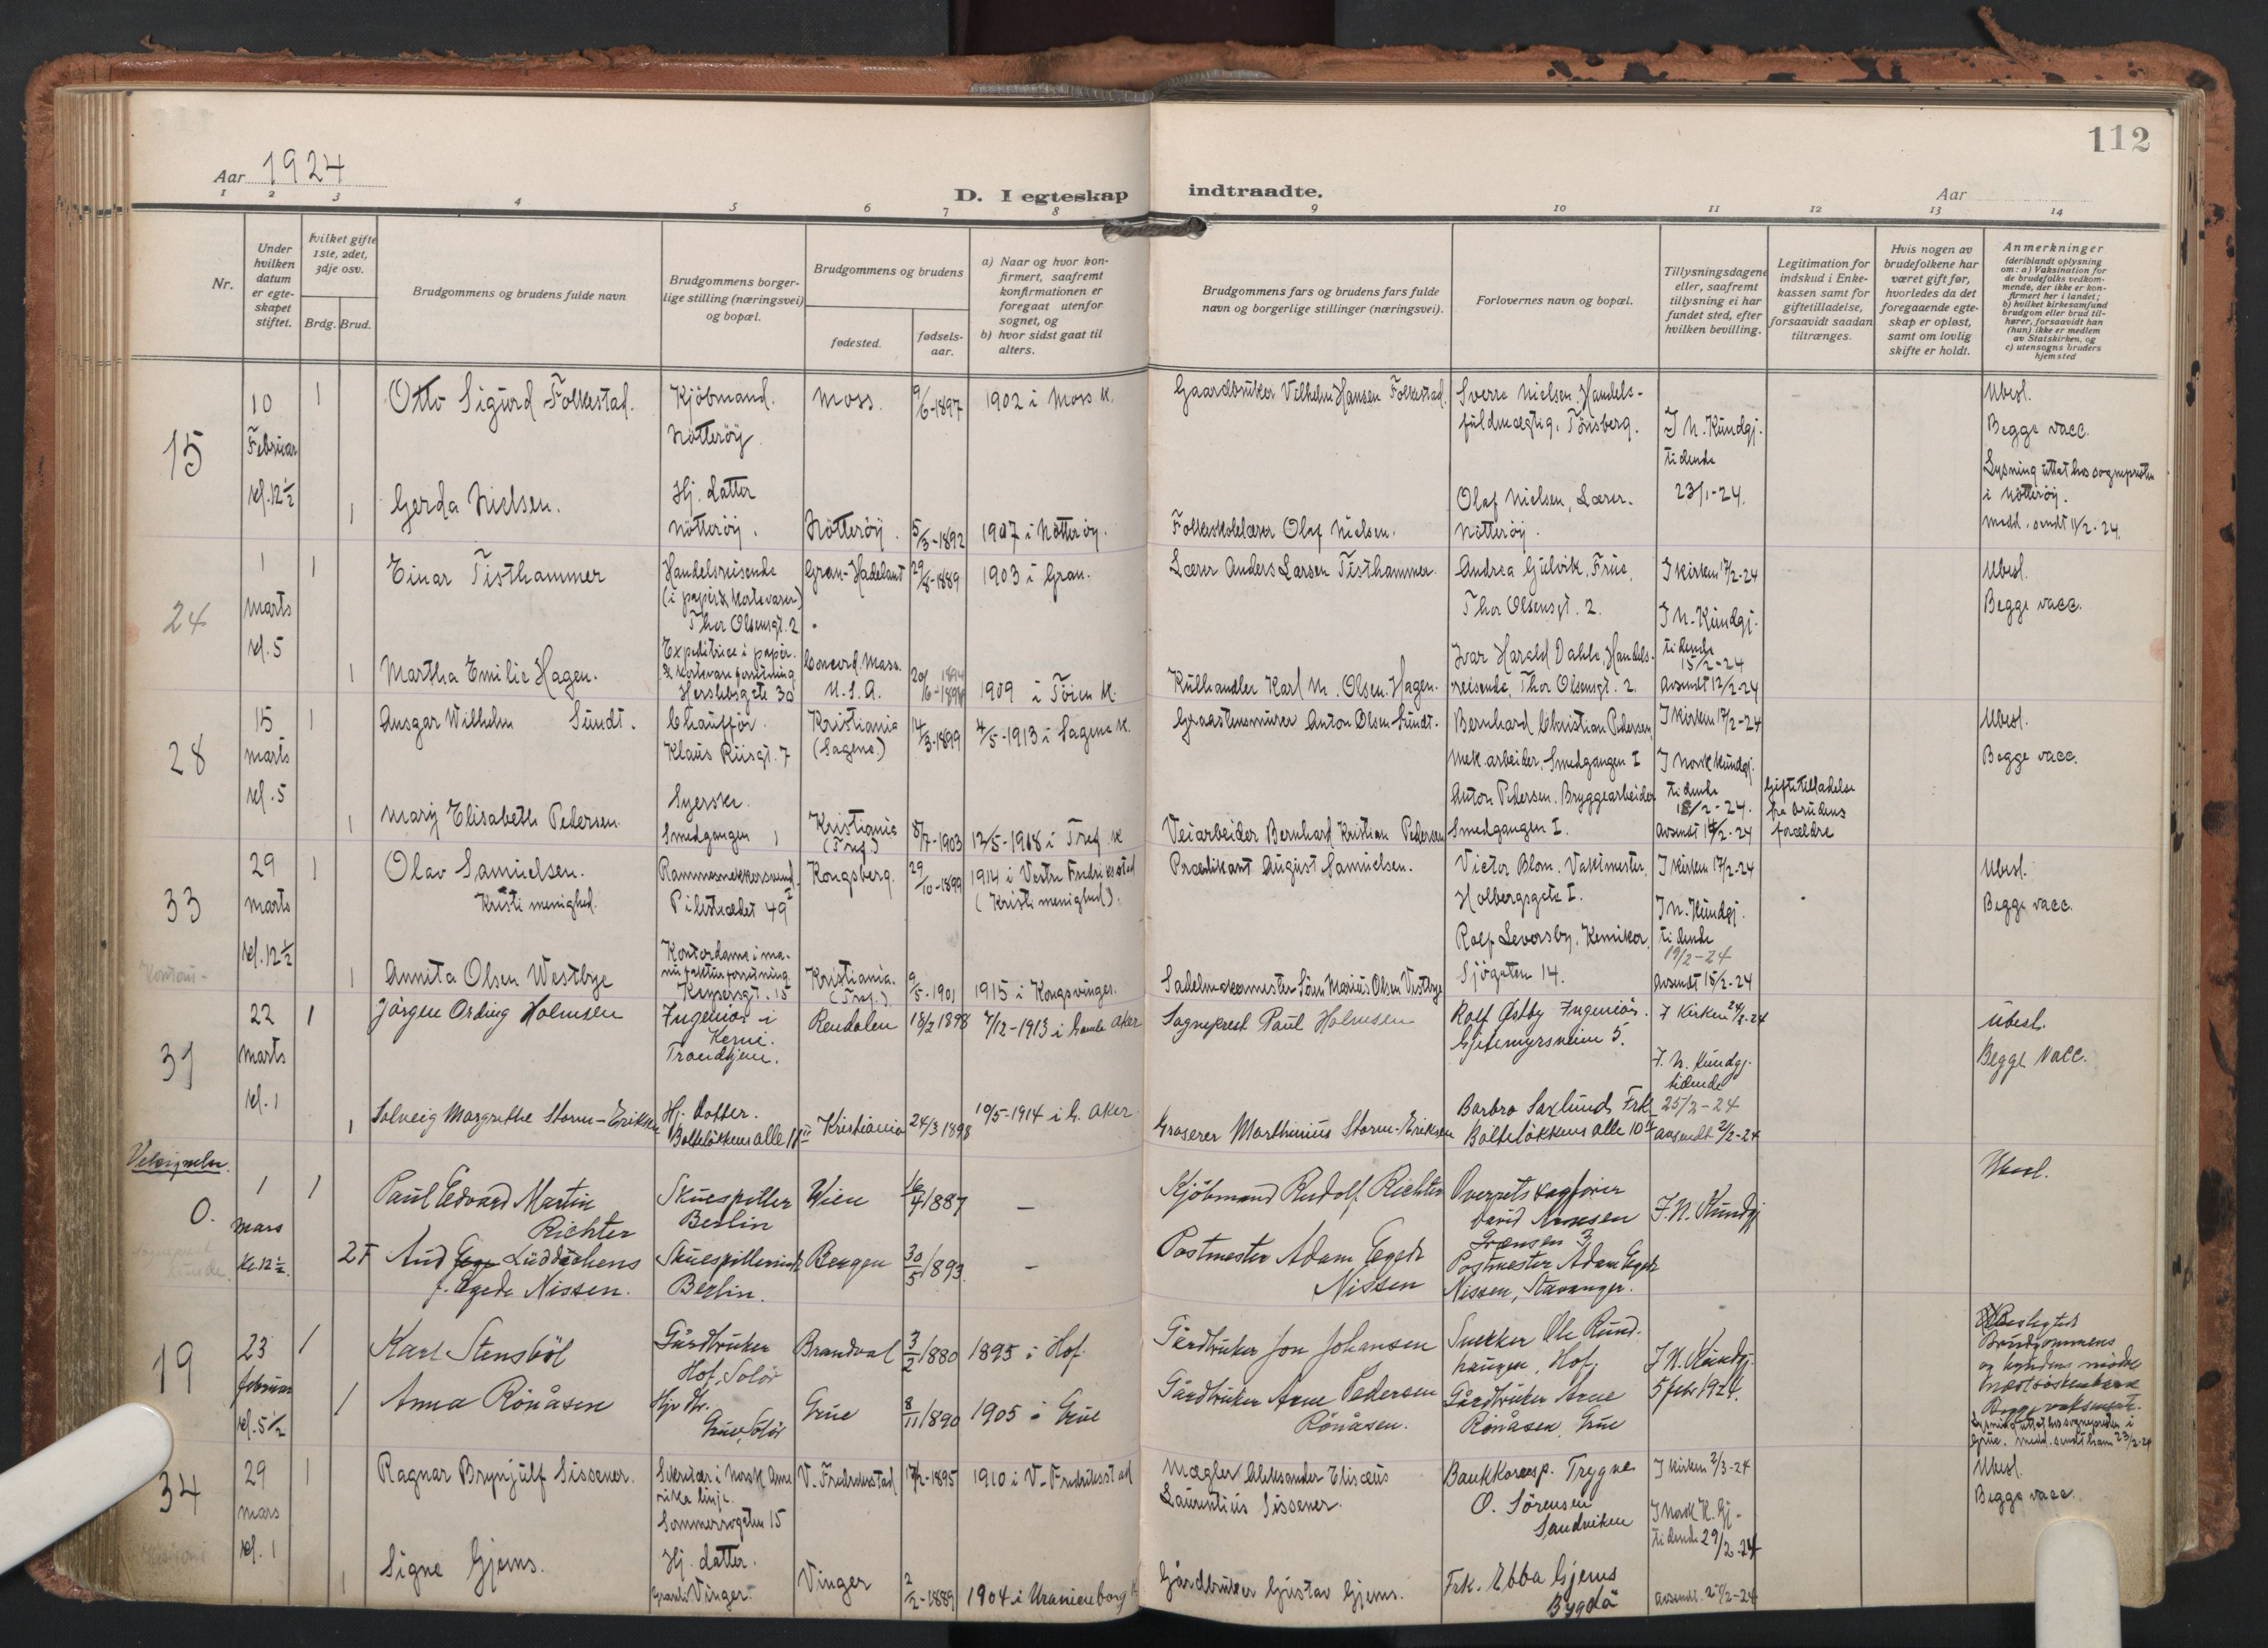 112
Aar 1924
D. I egteskap indtraadte.
Aar
1 2 3 4 5 6 7 8 9 10 11 12 13 14
Nr.
Under hvilken datum er egte-skapet stiftet.
hvilket gifte 1ste, 2det, 3dje osv.
Brdg. Brud.
Brudgommens og brudens fulde navn
Brudgommens borger-lige stilling (næringsvei) og bopæl.
Brudgommens og brudens
fødested.
fødsels-aar.
a) Naar og hvor kon-firmert, saafremt konfirmationen er foregaat utenfor sognet, og
b) hvor sidst gaat til alters.
Brudgommens fars og brudens fars fulde navn og borgerlige stillinger (næringsvei).
Forlovernes navn og bopæl.
Tillysningsdagene eller, saafremt tillysning ei har fundet sted, efter hvilken bevilling.
Legitimation for indskud i Enke-kassen samt for giftetilladelse, forsaavidt saadan tiltrænges.
Hvis nogen av brudefolkene har været gift før, hvorledes da det foregaaende egte-skap er opløst, samt om lovlig skifte er holdt.
Anmerkninger
(deriblandt oplysning om: a) Vaksination for de brudefolks vedkom-mende, der ikke er kon-firmert her i landet; b) hvilket kirkesamfund brudgom eller brud til-hører, forsaavidt han (hun) ikke er medlem av Statskirken, og c) utensogns bruders hjemsted
15
10 Februar kl. 12½
1 Otto Sigurd Folkestad. Kjöbmand. Nötteröy. Moss. 9/6-1897 1902 i Moss K. Gaardbruker Vilhelm Hansen Folkestad. Sverre Nielsen, Handels-fuldmægtig, Tönsberg. I N. Kundgj. tidende 23/1-24. Ubesl. Begge vacc. Lysning uttat hos sogneprsten i Nötteröy. Medd. sendt 11/2-24.
1 Gerda Nielsen. Hj. datter Nötteröy. Nötteröy. 5/3-1892 1907 i Nötteröy. Folkeskolelærer Olaf Nielsen. Olaf Nielsen, Lærer. Nötteröy.
24
1 marts kl. 5
1 Einar Tisthammer Handelsreisende (i papir & kortevarer) Thor Olsensgt. 2 Gran-Hadeland 29/8-1889 1903 i Gran. Lærer Anders Larsen Tisthammer. Andrea Gulvik, Frue, Thor Olsensgt. 2. I kirken 17/2-24 I N. Kundgj. tidende 15/2-24 Avsendt 12/2-24 Ubesl. Begge vacc.
1 Martha Emilie Hagen. Expeditrice i papir- & kortevareforretning Herslebsgate 30 Concord. Mass. U.S.A. 20/6-1894 1909 i Töien K. Kulhandler Karl M. Olsen Hagen. Ivar Harald Dahle, Handels-reisende, Thor Olsensgt. 2.
28
15 marts kl. 5
1 Ansgar Wilhelm Sundt. Chauffør. Klaus Riisgt. 7 Kristiania (Sagene.) 14/3-1899 4/5-1913 i Sagene K. Graastensmurer Anton Olsen Sundt. Bernhard Christian Pedersen, Mek. arbeider, Smedgangen I I kirken 17/2-24 I Norsk Kundgj. tidende 18/2-24. Avsendt 14/2-24 Giftetilladelse fra brudens forældre Ubesl. Begge vacc.
1 Mary Elisabeth Pedersen. Syerske. Smedgangen 1 Kristiania (Tref.) 8/7-1903 12/5-1918 i Tref. K Veiarbeider Bernhard Kristian Pedersen Anton Pedersen. Bryggearbeider Smedgangen I.
33
29 marts kl. 12½
1 Olav Samuelsen. Kristi menighed. Rammesnekkersvend. Pilestrædet 49 Kongsberg. 29/10-1899 1914 i Vestre Fredriksstad (Kristi menighed). Prædikant August Samuelsen. Victor Blom. Vaktmester, Holbergsgate I. I kirken 17/2-24 I N. Kundgj. tidende 19/2-24 Avsendt 15/2-24 Ubesl. Begge vacc.
1 Annita Olsen Westbye Kontordame i ma-nufakturforretning. Keysersgt. 15 Kristiania. (Tref.) 9/5-1901 1915 i Kongsvinger. Sadelmakermester Sörn Marius Olsen Vestbye Rolf Leversby, Kemiker, Sjögaten 14.
31
22 marts kl. 1
1 Jörgen Ording Holmsen Ingeniör i Kemi. Trondhjem. Rendalen 18/2 1898 7/12-1913 i Gamle Aker Sogneprest Paul Holmsen Rolf Østby Ingeniör. Gjetemyrsveien 5. I Kirken 24/2-24 I. N. Kundgj. tidende 25/2-24 avsendt 21/2-24 Ubesl. Begge vacc.
1 Solveig Margrethe Storm-Eriksen Hj. Datter. Bolteløkkens alle Kristiania 24/3 1898 10/5-1914 i G. Aker. Grosserer Marthinius Storm-Eriksen Barbro Saxlund Frk. Bolteløkkens alle 10
Velsignelse.
O.
1 mars Kl. 12½
1 Paul Edvard Martin Richter Skuespiller Berlin Wien 16/4 1887 — Kjöbmand Rudolf Richter Overretssagförer David Arnesen Grænsen 3 I. N. Kundgj Ubesl.
2 F Aud Lüddechens f. Egede Nissen. Skuespillerinde Berlin. Bergen 30/5 1893 — Postmester Adam Egede Nissen Postmester Adam Egede Nissen, Stavanger.
19
23 februar kl. 5½
1 Karl Stensböl Gårdbruker Hof, Solör Brandval 3/2 1880 1895 i Hof. Gårdbruker Jon Johansen Snekker Ole Rund-haugen, Hof, I N. Kundgj. 5 febr 1924. Beslegted Brudgommens og brudens mødre
1 Anna Rönåsen Hjv. dtr. Grue, Solör Grue 8/11 1890 1905 i Grue Gårdbruker Arne Pedersen Rönåsen. Gårdbruker Arne Rönåsen, Grue Lysning uttat hos sognepresten i Grue. Medd. sendt ham 23/2-24
34
29 mars kl. 1
1 Ragnar Brynjulf Sissener. Sekretær i Norsk Ame-rika linje. Sommerrogaten 15 V. Fredriksstad 17/2-1895 1910 i V. Fredriksstad Mægler Aleksander Elisæus Laurentius Sissener. Bankkorresp. Trygve O. Sörensen Sandviken I kirken 2/3-24 I Norsk K. Gj-tidende 29/2-24 Ubesl. Begge vacc.
1 Signe Gjems. Hj. datter. Vinger. Vinger 2/2-1889 1904 i Uranienborg K Gårdbruker Gustav Gjems. Frk. Ebba Gjems Bygdö Avsendt 27/2-24